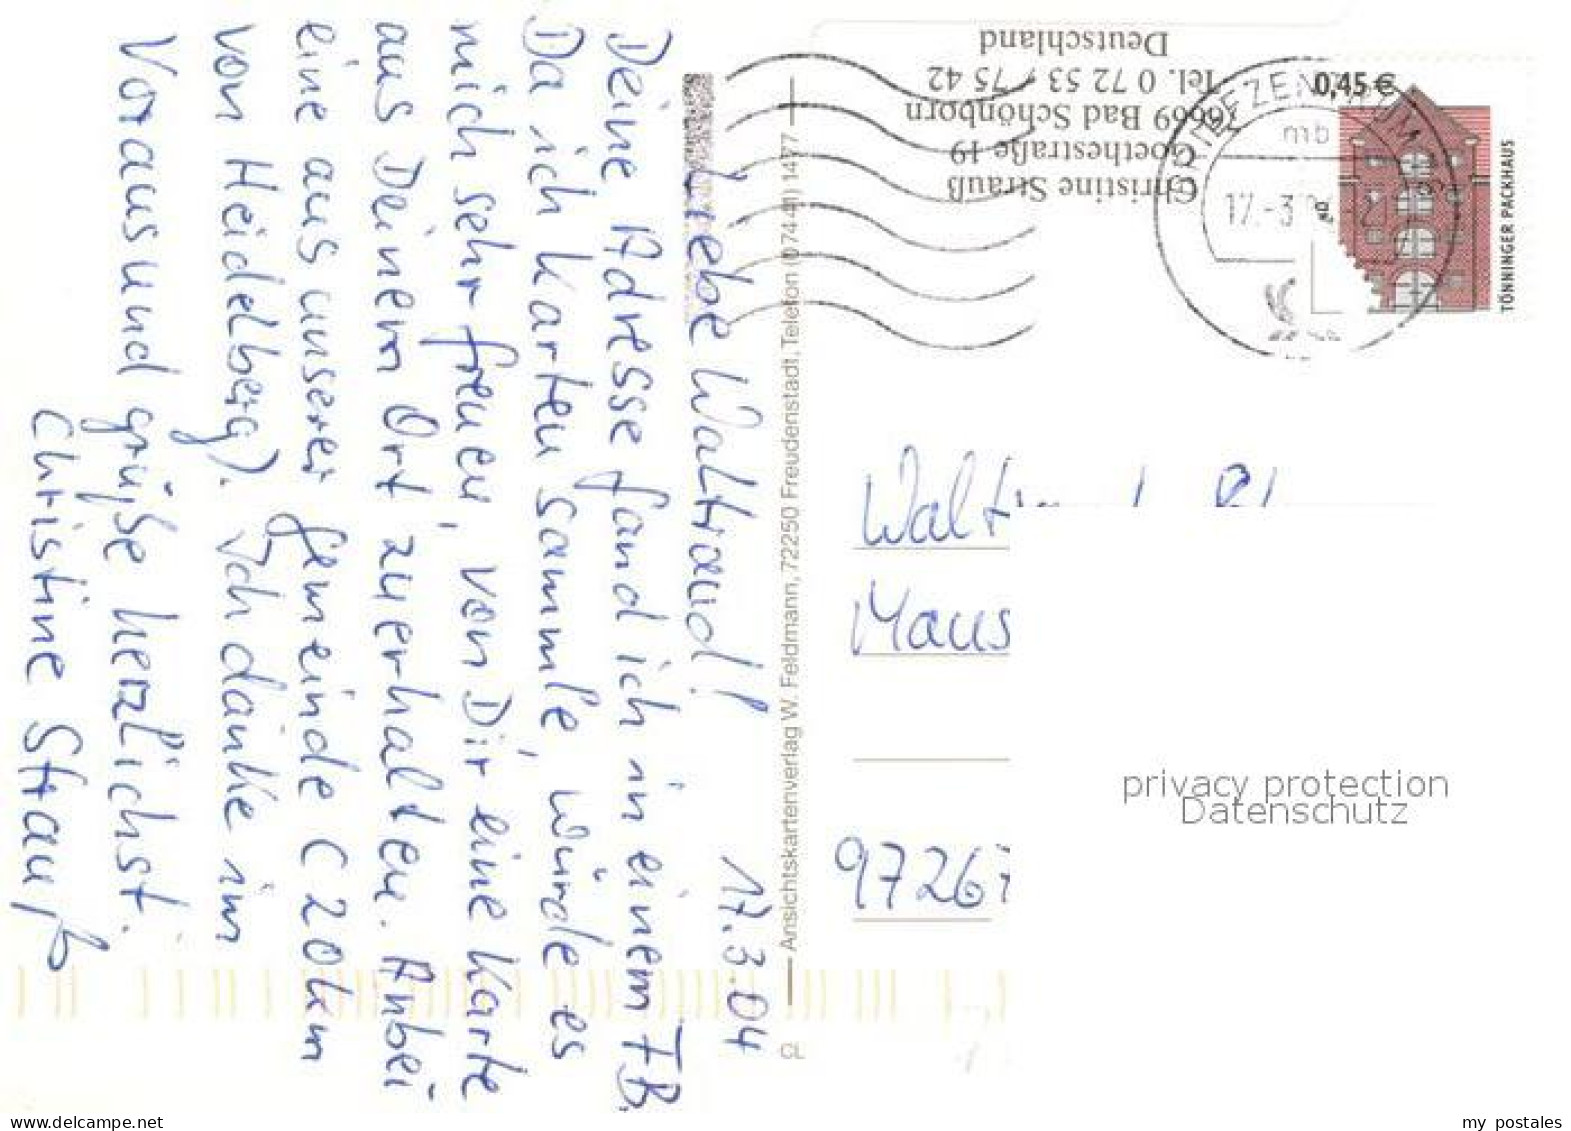 Liebe Waltraud! 17.3.04
Deine Adresse fand ich in einem FB.
Da ich Karten sammle, würde es
mich sehr freuen, von Dir eine Karte
aus Deinem Ort zu erhalten. Anbei
eine aus unserer Gemeinde (20km
von Heidelberg). Ich danke im
Voraus und grüße herzlichst.
Christine Strauß
Ansichtskartenverlag W. Feldmann, 72250 Freudenstadt, Telefon (07441) 1477
CL
Christine Strauß
Goethestraße 19
76669 Bad Schönborn
Tel. 0 72 53 / 75 42
Deutschland
0,45 €
TÖNNINGER PACKHAUS
BRIEFZENTRUM
mb
17.-3
Waltraud
Maus
97267
privacy protection
Datenschutz
www.delcampe.net
my_postales